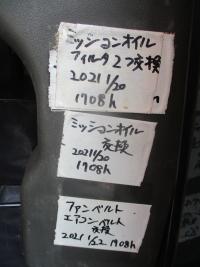 ミッションオイル
フィルタ2つ交検
2021 1/20
1708h
ミッションオイル
交検
2021 1/20
1708h
ファンベルト
エアコンベルト
交検
2021 1/22 1708h